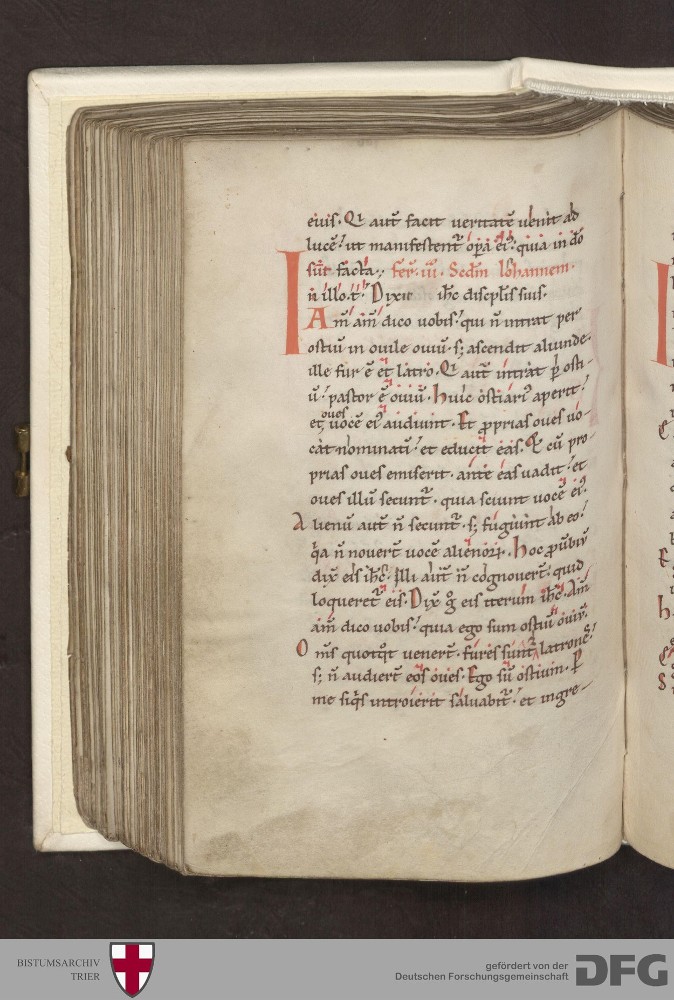 eius. Qi aut̄ facit ueritatē uenit ad
lucē. ut manifestent᷑ opa ei᷒. quia in dō
sūt facta. Fer̄. iii. Scdm Iohannem.
In illo.t̄. Dixit ihc̄ discplīs suis.
Am̄ am̄ dico uobis. qui n̄ intrat per
ostiū in ouile ouiū. s; ascendit aliunde.
ille fur ē et latro. Qi aut̄ intrat p̄ osti-
ū. pastor ē ouiū. huic ostiari᷒ aperit.
et oues uocē ei᷒ audiunt. Et p̄prias oues uo-
cat nominatī. et educit eas. Et cū pro-
prias oues emiserit. ante eas uadit. et
oues illū secunt᷑. quia sciunt uocē ei᷒.
Alienū aut̄ n̄ secunt᷑. s; fugiunt ab eo.
q̄a n̄ nouert̄ uocē alienoꝝ. Hoc pūbiū
dix̄ eis ihc̄. Illi aūt n̄ cognouert̄. quid
loqueret᷑ eis. Dix̄ g̊ eis iterum ihc̄. Am̄
am̄ dico uobis. quia ego sum ostiū ouiū.
Om̄s quotqt̄ uenert̄. fures sunt latronē.
s; n̄ audiert̄ eos oues. Ego sū ostium. P̄
me siq̄s introierit saluabit᷑. et ingre-
BISTUMSARCHIV
TRIER
gefördert von der
Deutschen Forschungsgemeinschaft
DFG